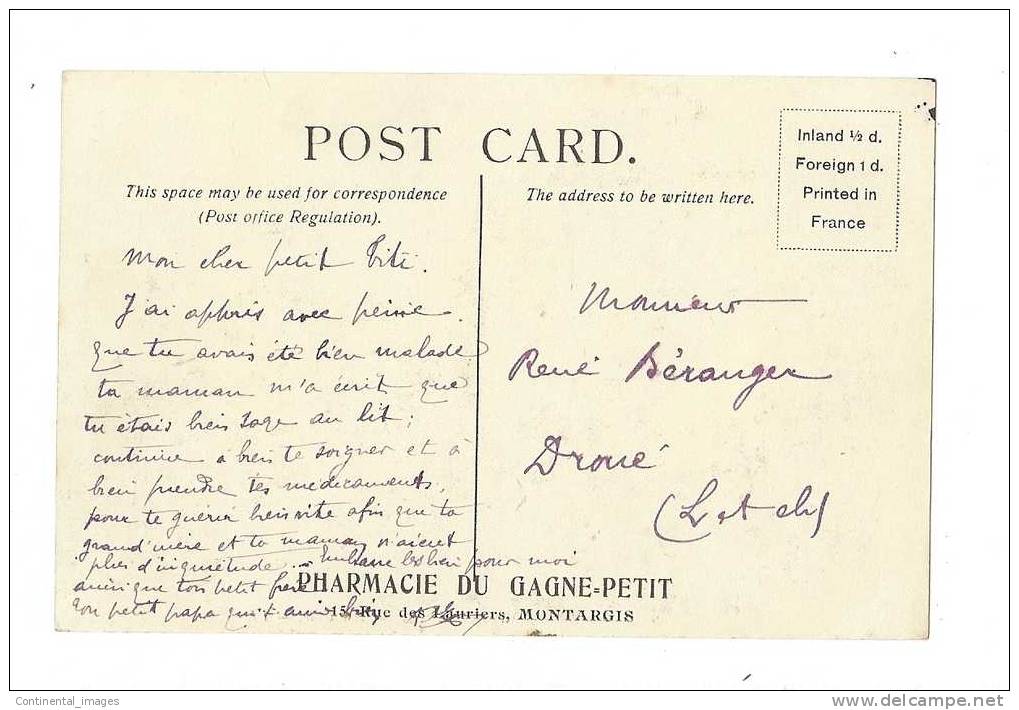 POST CARD.
Inland ½ d.
Foreign 1 d.
Printed in
France
This space may be used for correspondence
(Post office Regulation).
The address to be written here.
Mon cher petit Titi.
J'ai appris avec peine
que tu avais été bien malade
ta maman m'a écrit que
tu étais bien sage au lit;
continue à bien te soigner et à
bien prendre tes médicaments,
pour te guérir bien vite afin que ta
grand'mère et ta maman n'aient
plus d'inquiétude. Embrasse les bien pour moi
ainsi que ton petit frère
Ton petit papa qui t'aime bien
Monsieur
René Béranger
Droué
(L et ch)
PHARMACIE DU GAGNE-PETIT
15, Rue des Lauriers, MONTARGIS
Continental_images
www.delcampe.net